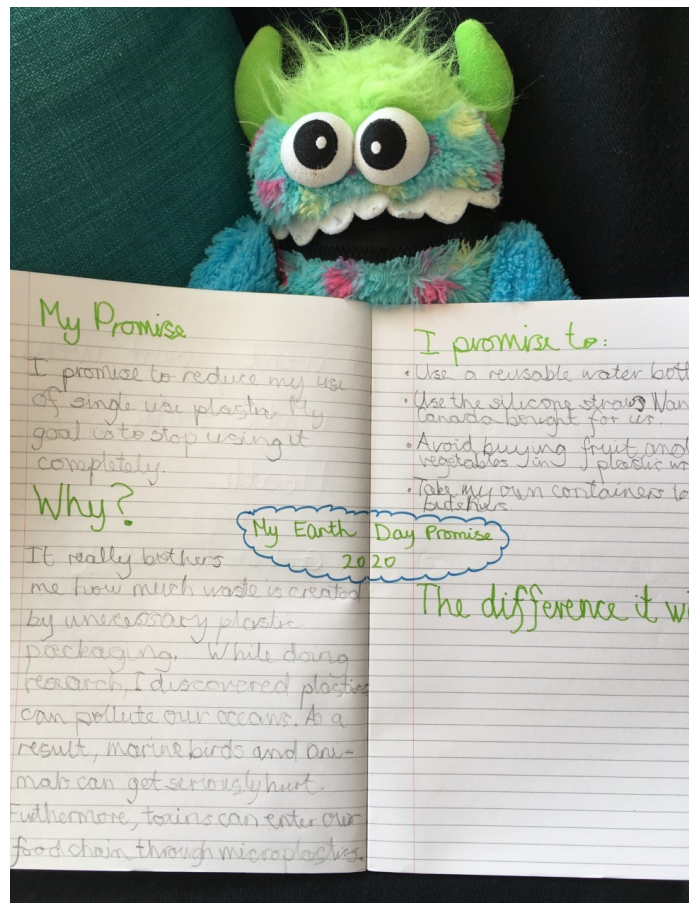 My Promise
I promise to reduce my use
of single use plastic. My
goal is to stop using it
completely.
Why?
It really bothers
me how much waste is created
by unnecessary plastic
packaging. While doing
research, I discovered plastics
can pollute our oceans. As a
result, marine birds and ani-
mals can get seriously hurt.
Futhermore, toxins can enter our
food chain through microplastics.
My Earth Day Promise
2020
I promise to:
• Use a reusable water bott
• Use the silicone straws Nan
Canada bought for us.
• Avoid buying fruit and
vegetables in plastic w
• Take my own containers to
butchers
The difference it wi